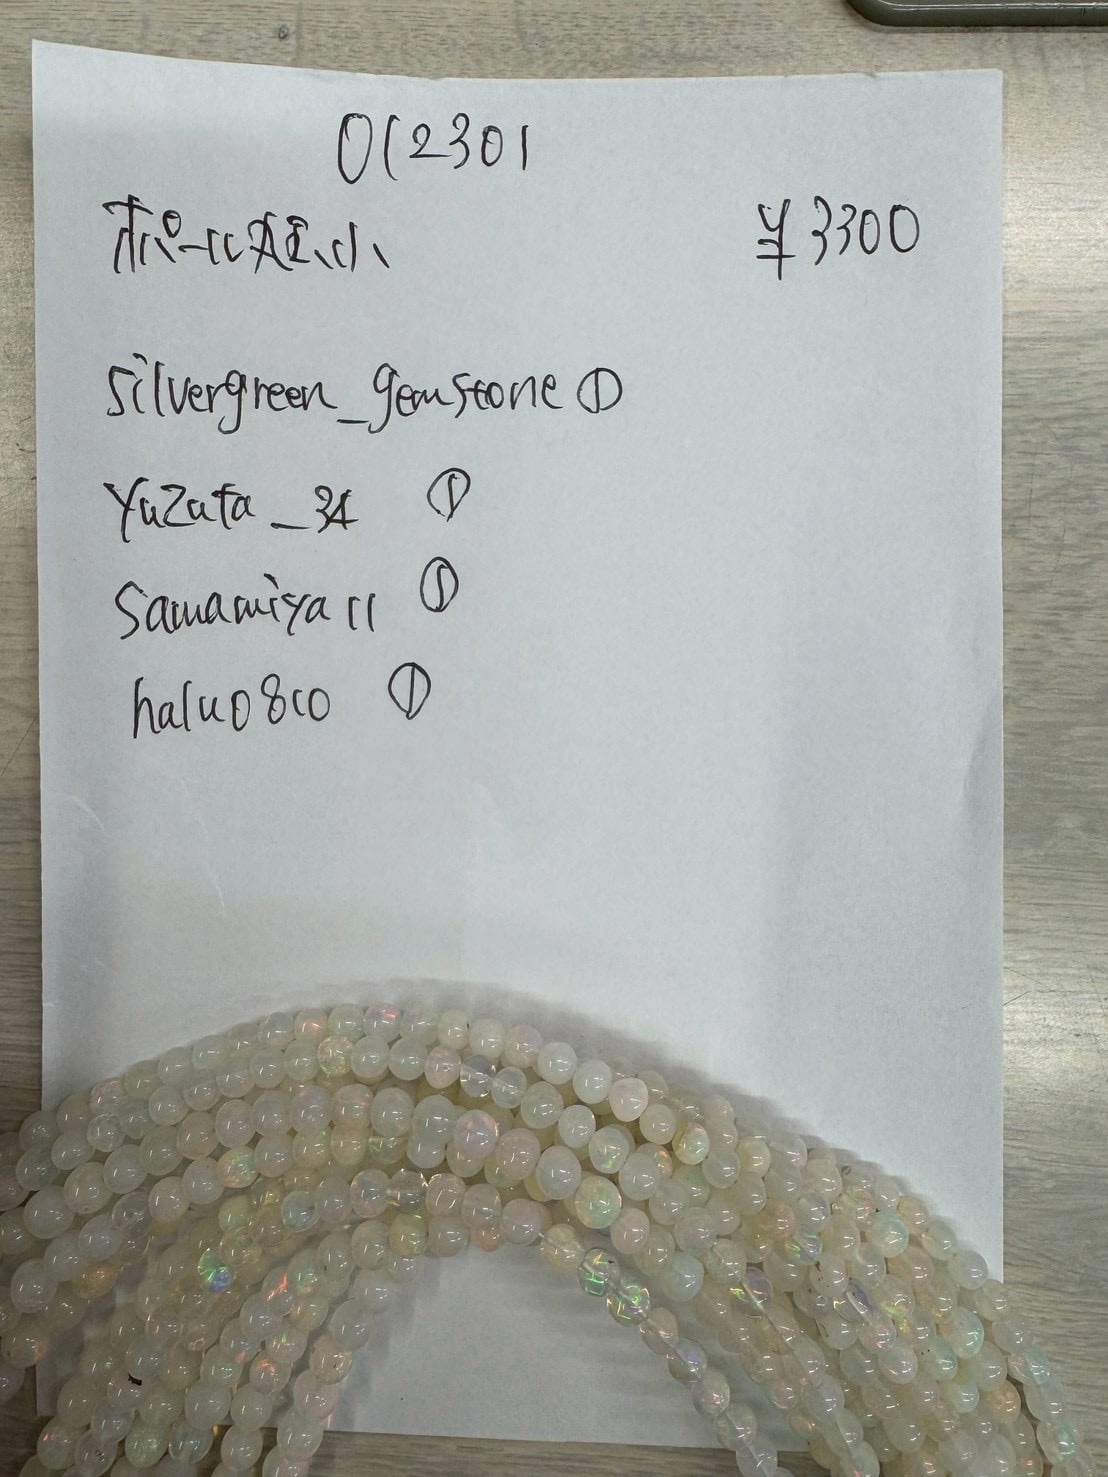 012301
¥3300
silvergreen_gemstone ①
yuzuta_34 ①
Samamiya11 ①
halu0810 ①